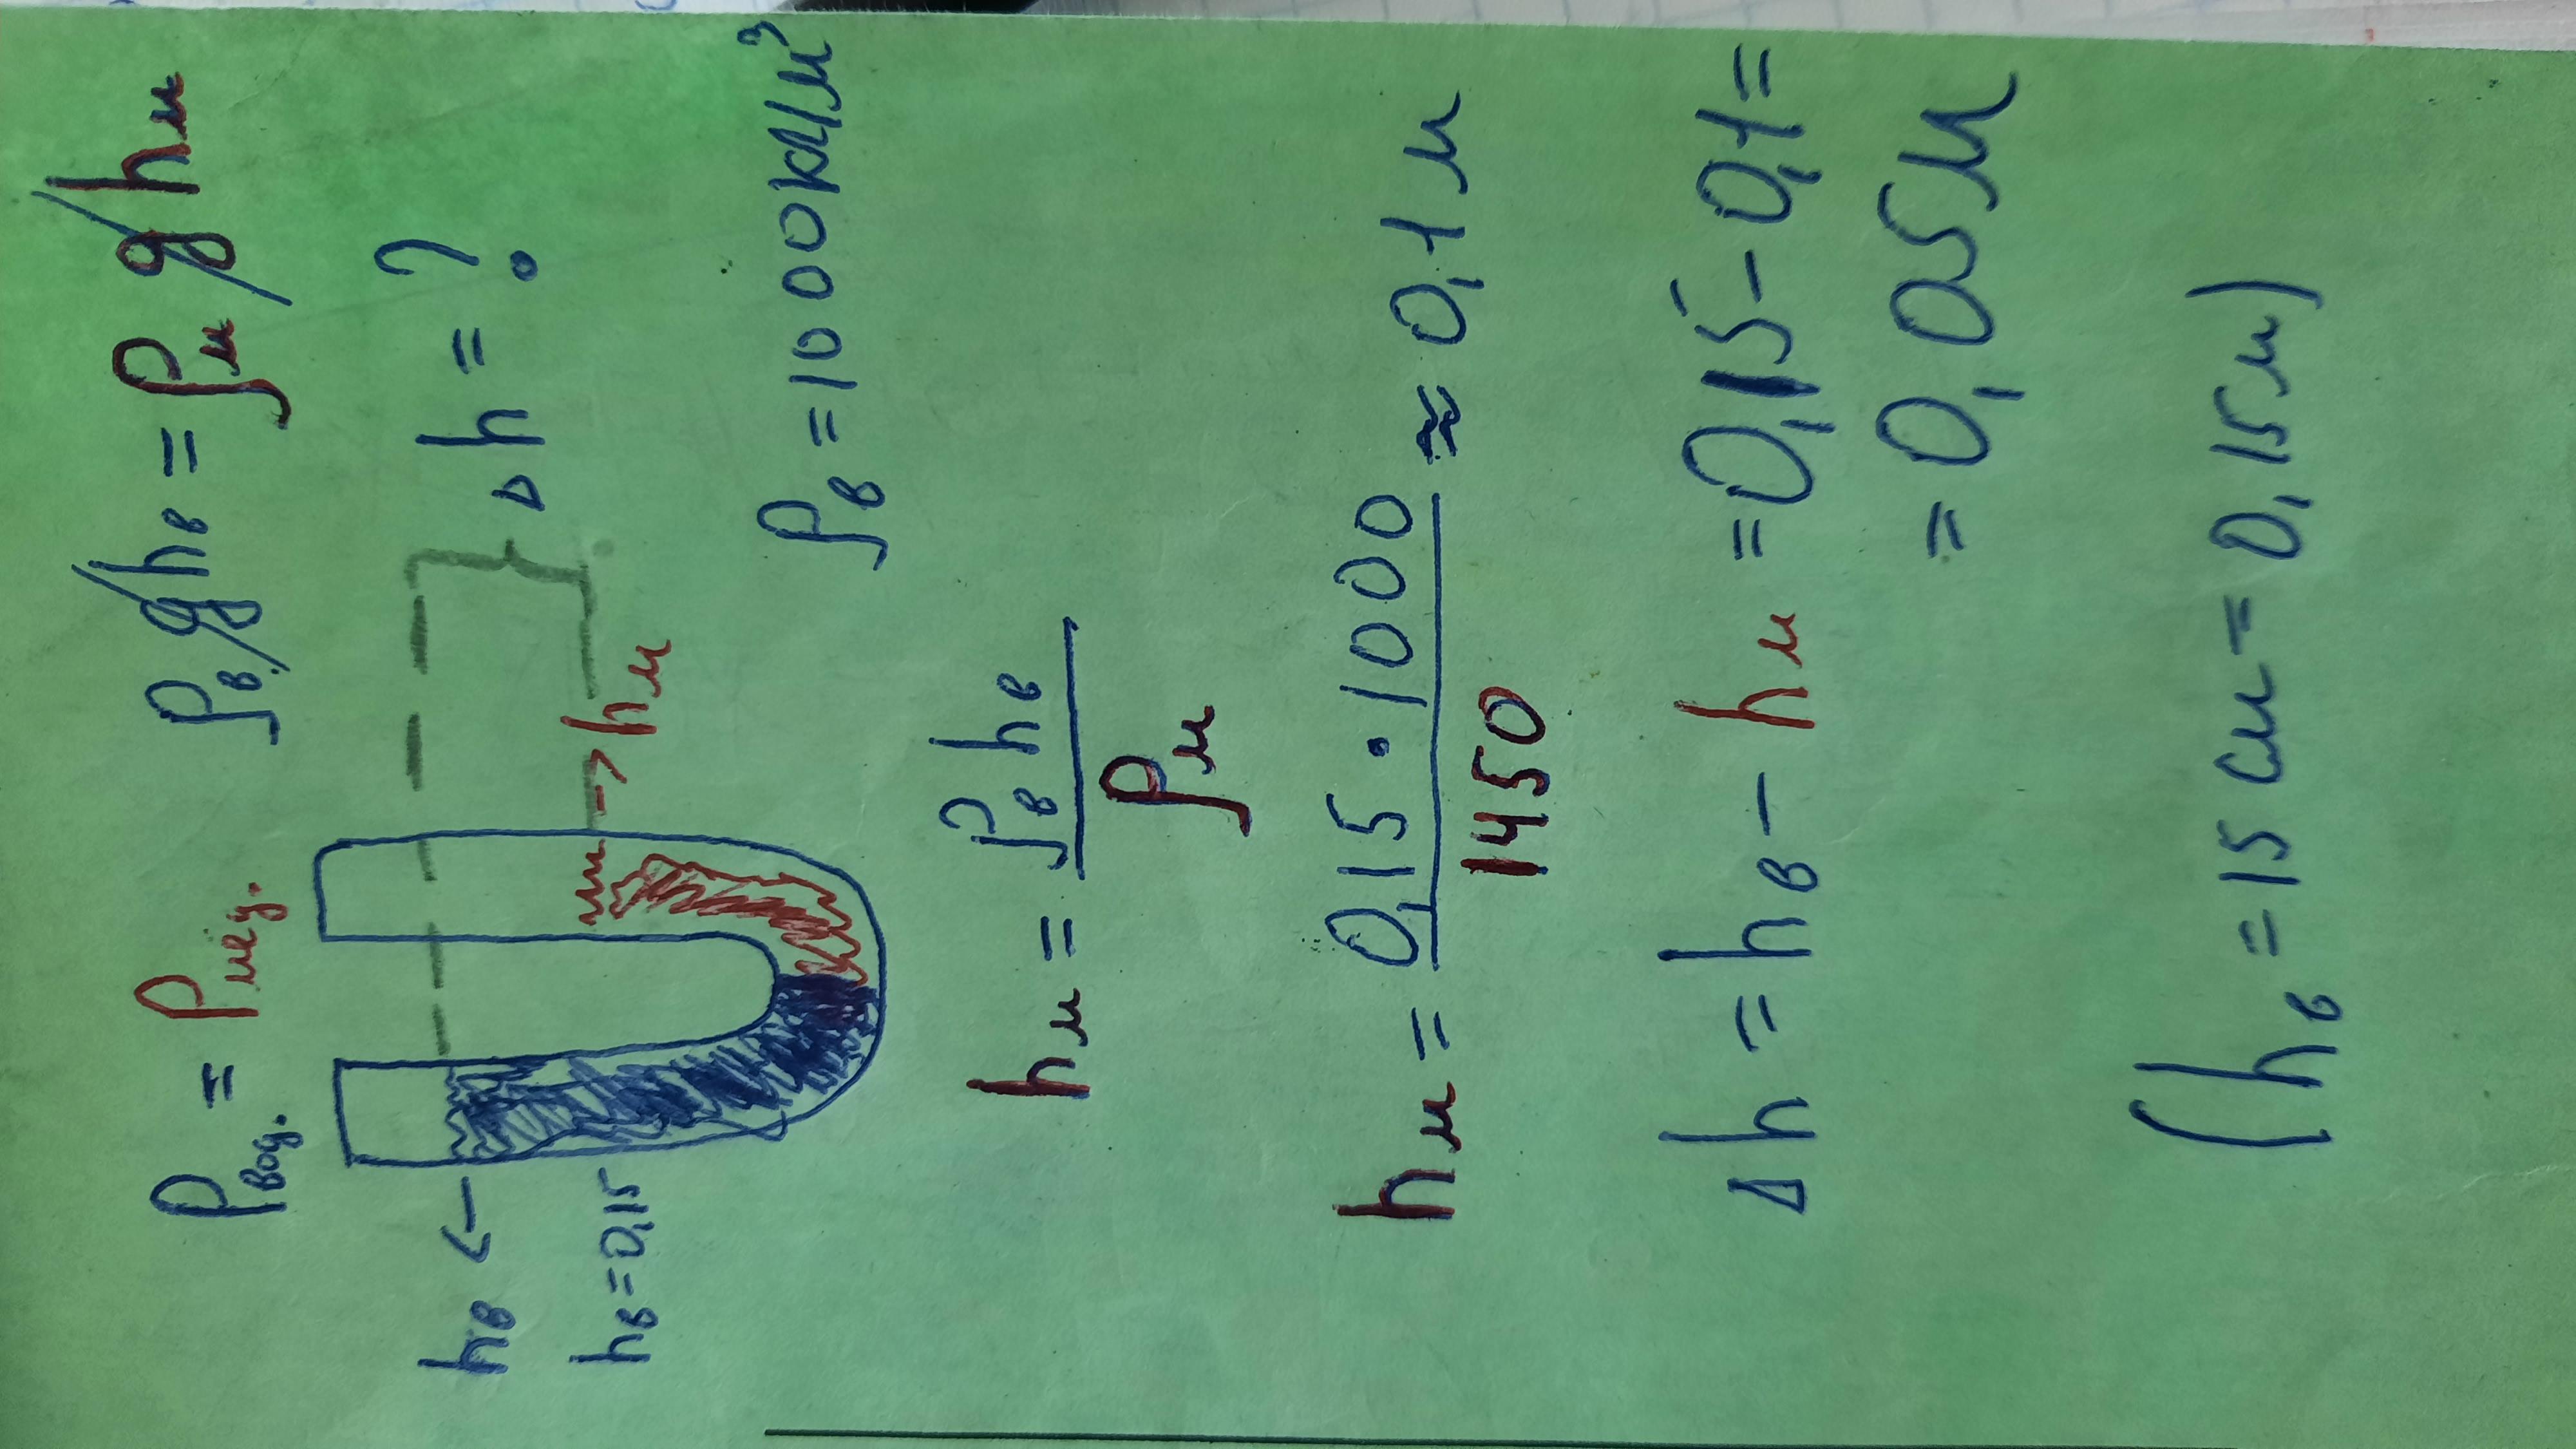 Pвод. = Pмед. ρв g hв = ρм g hм
hв ←
→ hм
Δh = ?
hв = 0,15
ρв = 1000 кг/м³
hм = ρв hв / ρм
hм = 0,15 · 1000 / 1450 ≈ 0,1 м
Δh = hв - hм = 0,15 - 0,1 =
= 0,05 м
(hв = 15 см = 0,15 м)